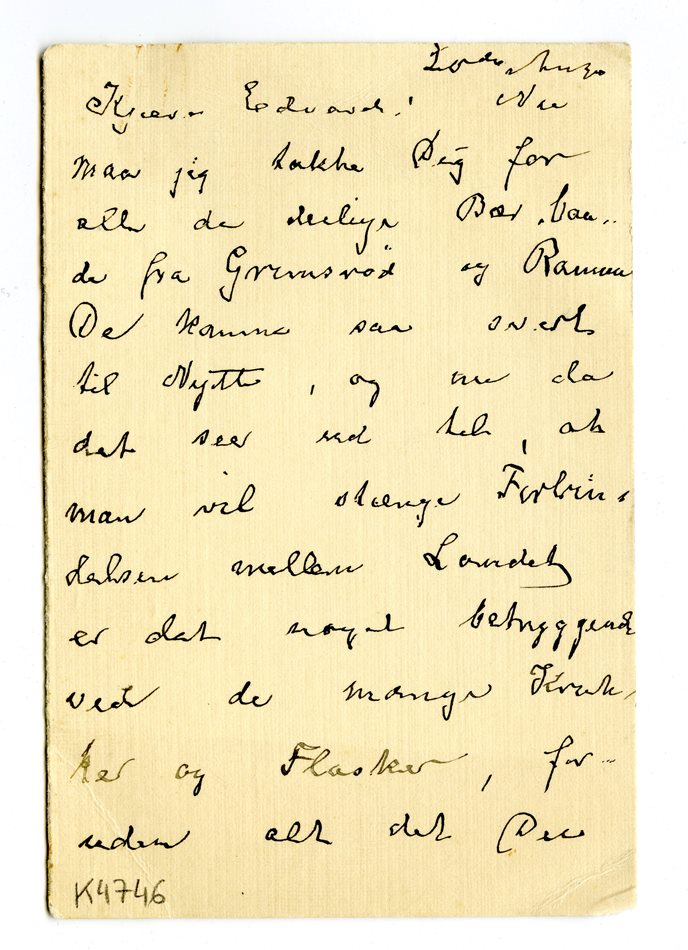 Kjære Edvard! Nu
maa jig takke Deig for
alle de deilige Bær, baa-
de fra Grimsrød og Ramme
De komme saa svert
til Nytte, og nu da
det seer ud til, at
man vil stænge Forbin-
delsen mellem Landet,
er det noget betryggende
ved de mange Kruk-
ker og Flasker, for-
uden alt det Du
K4746